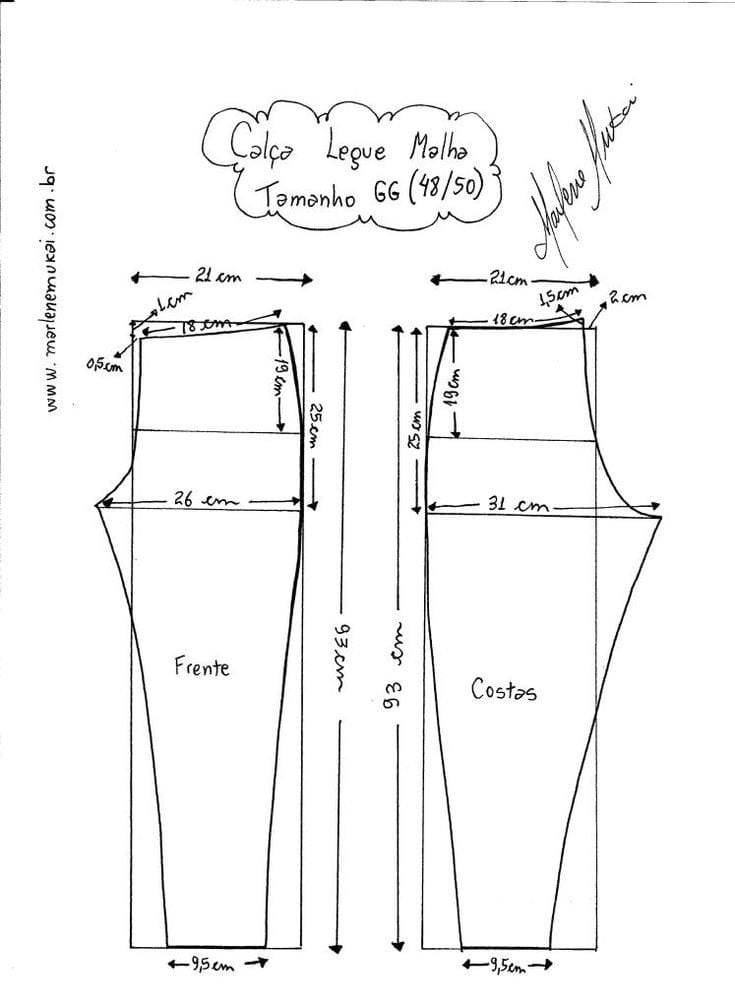 Calça Legue Malha
Tamanho GG (48/50)
Marlene Mukai
www.marlenemukai.com.br
21 cm
1cm
18 cm
0,5cm
19 cm
25 cm
26 cm
93 cm
Frente
9,5 cm
21cm
1,5cm
2 cm
18cm
19cm
25 cm
31 cm
93 cm
Costas
9,5cm